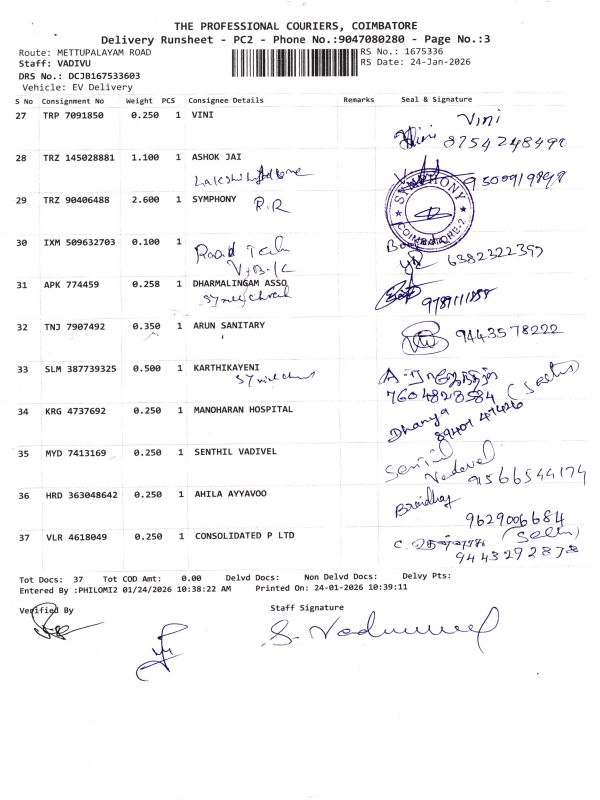 THE PROFESSIONAL COURIERS, COIMBATORE
Delivery Runsheet - PC2 - Phone No.:9047080280 - Page No.:3
Route: METTUPALAYAM ROAD RS No.: 1675336
Staff: VADIVU RS Date: 24-Jan-2026
DRS No.: DCJB167533603
Vehicle: EV Delivery
S No Consignment No Weight PCS Consignee Details Remarks Seal & Signature
27 TRP 7091850 0.250 1 VINI Vini
8754248490
28 TRZ 145028881 1.100 1 ASHOK JAI
9500919898
29 TRZ 90406488 2.600 1 SYMPHONY R.R SYMPHONY COIMBATORE-2
30 IXM 509632703 0.100 1
6382322397
31 APK 774459 0.258 1 DHARMALINGAM ASSO
32 TNJ 7907492 0.350 1 ARUN SANITARY 9443578222
33 SLM 387739325 0.500 1 KARTHIKAYENI
7604828584
34 KRG 4737692 0.250 1 MANOHARAN HOSPITAL Dhanya
89401 47426
35 MYD 7413169 0.250 1 SENTHIL VADIVEL Senthil
Vadavel
9566544174
36 HRD 363048642 0.250 1 AHILA AYYAVOO
9629006684
37 VLR 4618049 0.250 1 CONSOLIDATED P LTD
9443292878
Tot Docs: 37 Tot COD Amt: 0.00 Delvd Docs: Non Delvd Docs: Delvy Pts:
Entered By :PHILOMI2 01/24/2026 10:38:22 AM Printed On: 24-01-2026 10:39:11
Verified By Staff Signature